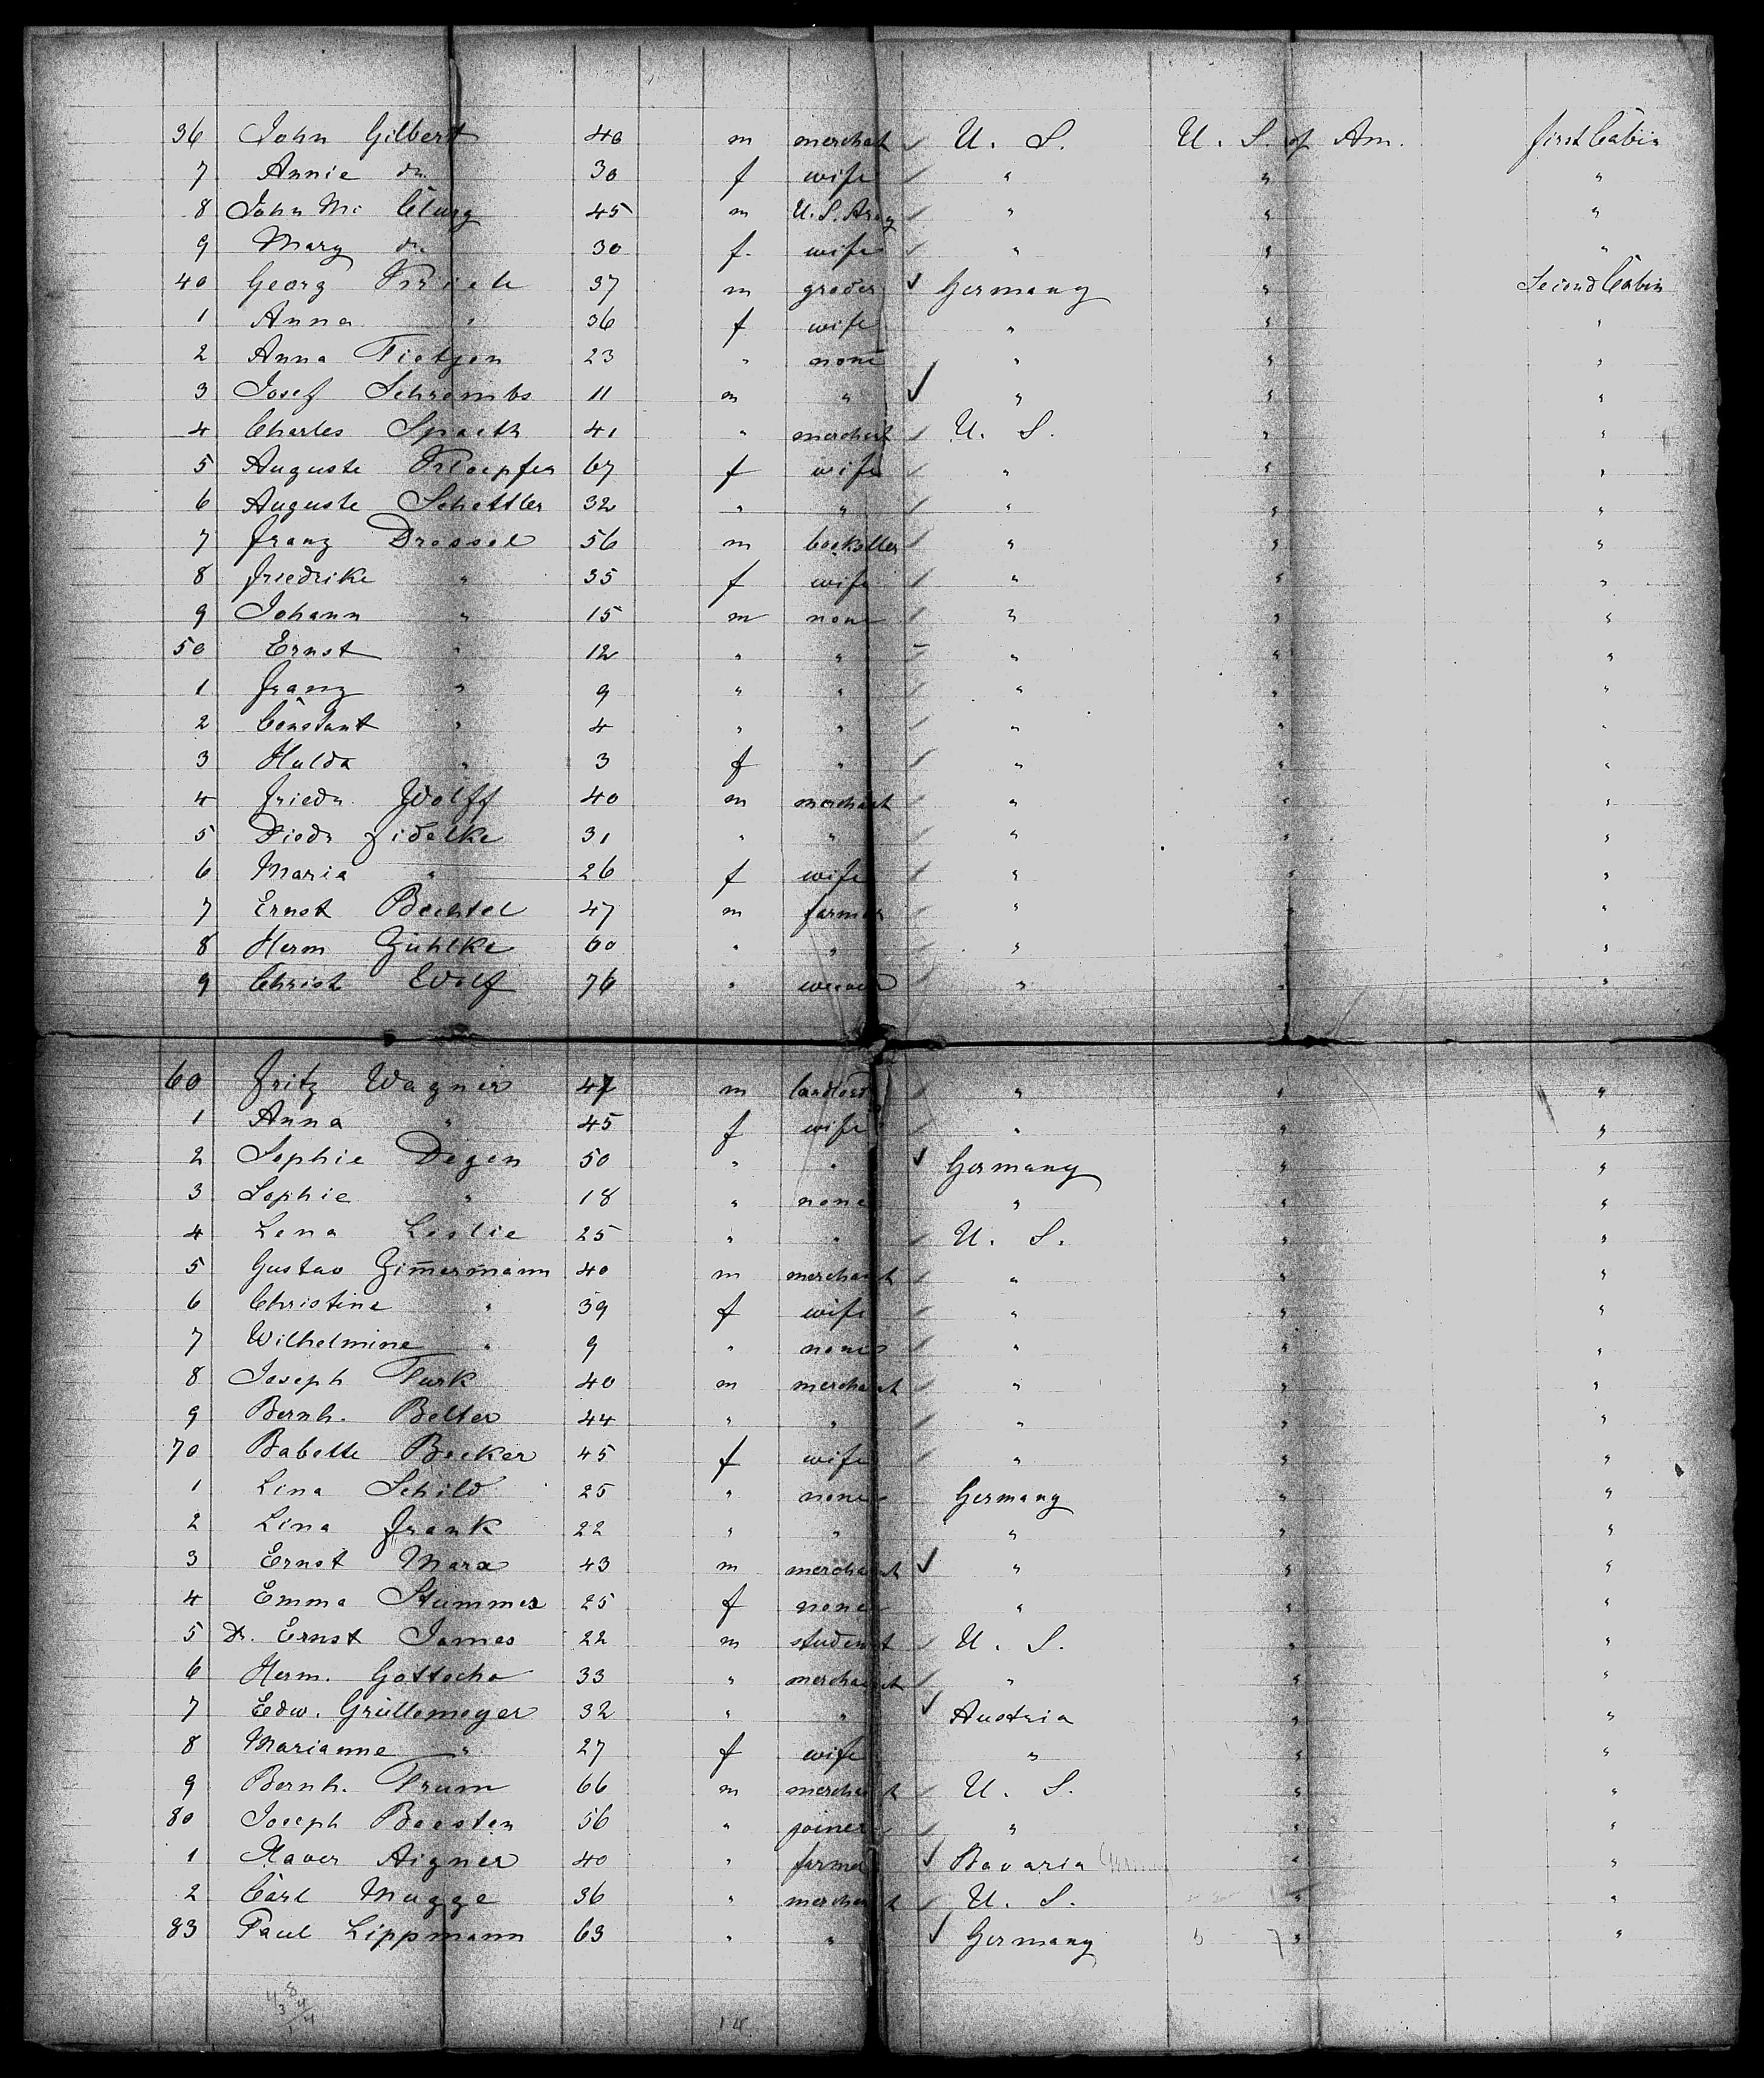 36 John Gilbert 40 m merchat U. S. U. S. of Am. first Cabin
7 Annie do. 30 f wife " " "
8 John Mc Clurg 45 m U.S. Army " " "
9 Mary do 30 f. wife " " "
40 Georg 37 m grocer Germany " Second Cabin
1 Anna " 36 f wife " " "
2 Anna Tietjen 23 " none " " "
3 Josef Schrembs 11 m " " " "
4 Charles Spaeth 41 " merchant U. S. " "
5 Auguste Kloepfer 67 f wife " " "
6 Auguste Schettler 32 " " " " "
7 Franz Dressel 56 m bookseller " " "
8 Friedrike " 35 f wife " " "
9 Johann " 15 m none " " "
50 Ernst " 12 " " " " "
1 Franz " 9 " " " " "
2 Constant " 4 " " " " "
3 Hulda " 3 f " " " "
4 Friedr. Wolff 40 m merchant " " "
5 Diedr Fidelke 31 " " " " "
6 Maria " 26 f wife " " "
7 Ernst Bechtel 47 m farmer " " "
8 Herm Zühlke 60 " " " " "
9 Christ Wolf 76 " weaver " " "
60 Fritz Wagner 47 m landlord " " "
1 Anna " 45 f wife " " "
2 Sophie Degen 50 " " Germany " "
3 Sophie " 18 " none " " "
4 Lena Leslie 25 " " U. S. " "
5 Gustav Zim̄ermann 40 m merchant " " "
6 Christine " 39 f wife " " "
7 Wilhelmine " 9 " none " " "
8 Joseph Turk 40 m merchant " " "
9 Bernh. Belter 44 " " " " "
70 Babette Becker 45 f wife " " "
1 Lina Schild 25 " none Germany " "
2 Lina Frank 22 " " " " "
3 Ernst Marx 43 m merchant " " "
4 Emma Stummer 25 f none " " "
5 Dr. Ernst James 22 m student U. S. " "
6 Herm. Gottscho 33 " merchant " " "
7 Edw. Grüllemeyer 32 " " Austria " "
8 Marianne " 27 f wife " " "
9 Bernh. Trum 66 m merchant U. S. " "
80 Joseph Boesten 56 " joiner " " "
1 Xaver Aigner 40 " farmer Bavaria " "
2 Carl Mugge 36 " merchant U. S. " "
83 Paul Lippmann 63 " " Germany " "